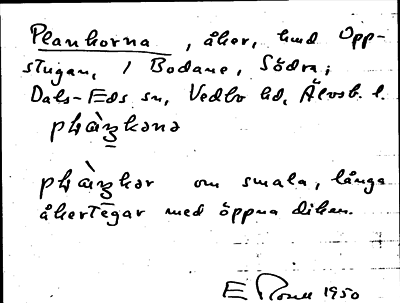 Plankorna, åker, hmd Opp-
stugan, 1 Bodane, Södra;
Dals-Eds sn, Vedbo hd, Älvsb. l.
om smala, långa
åkertegar med öppna diken.
E 1950